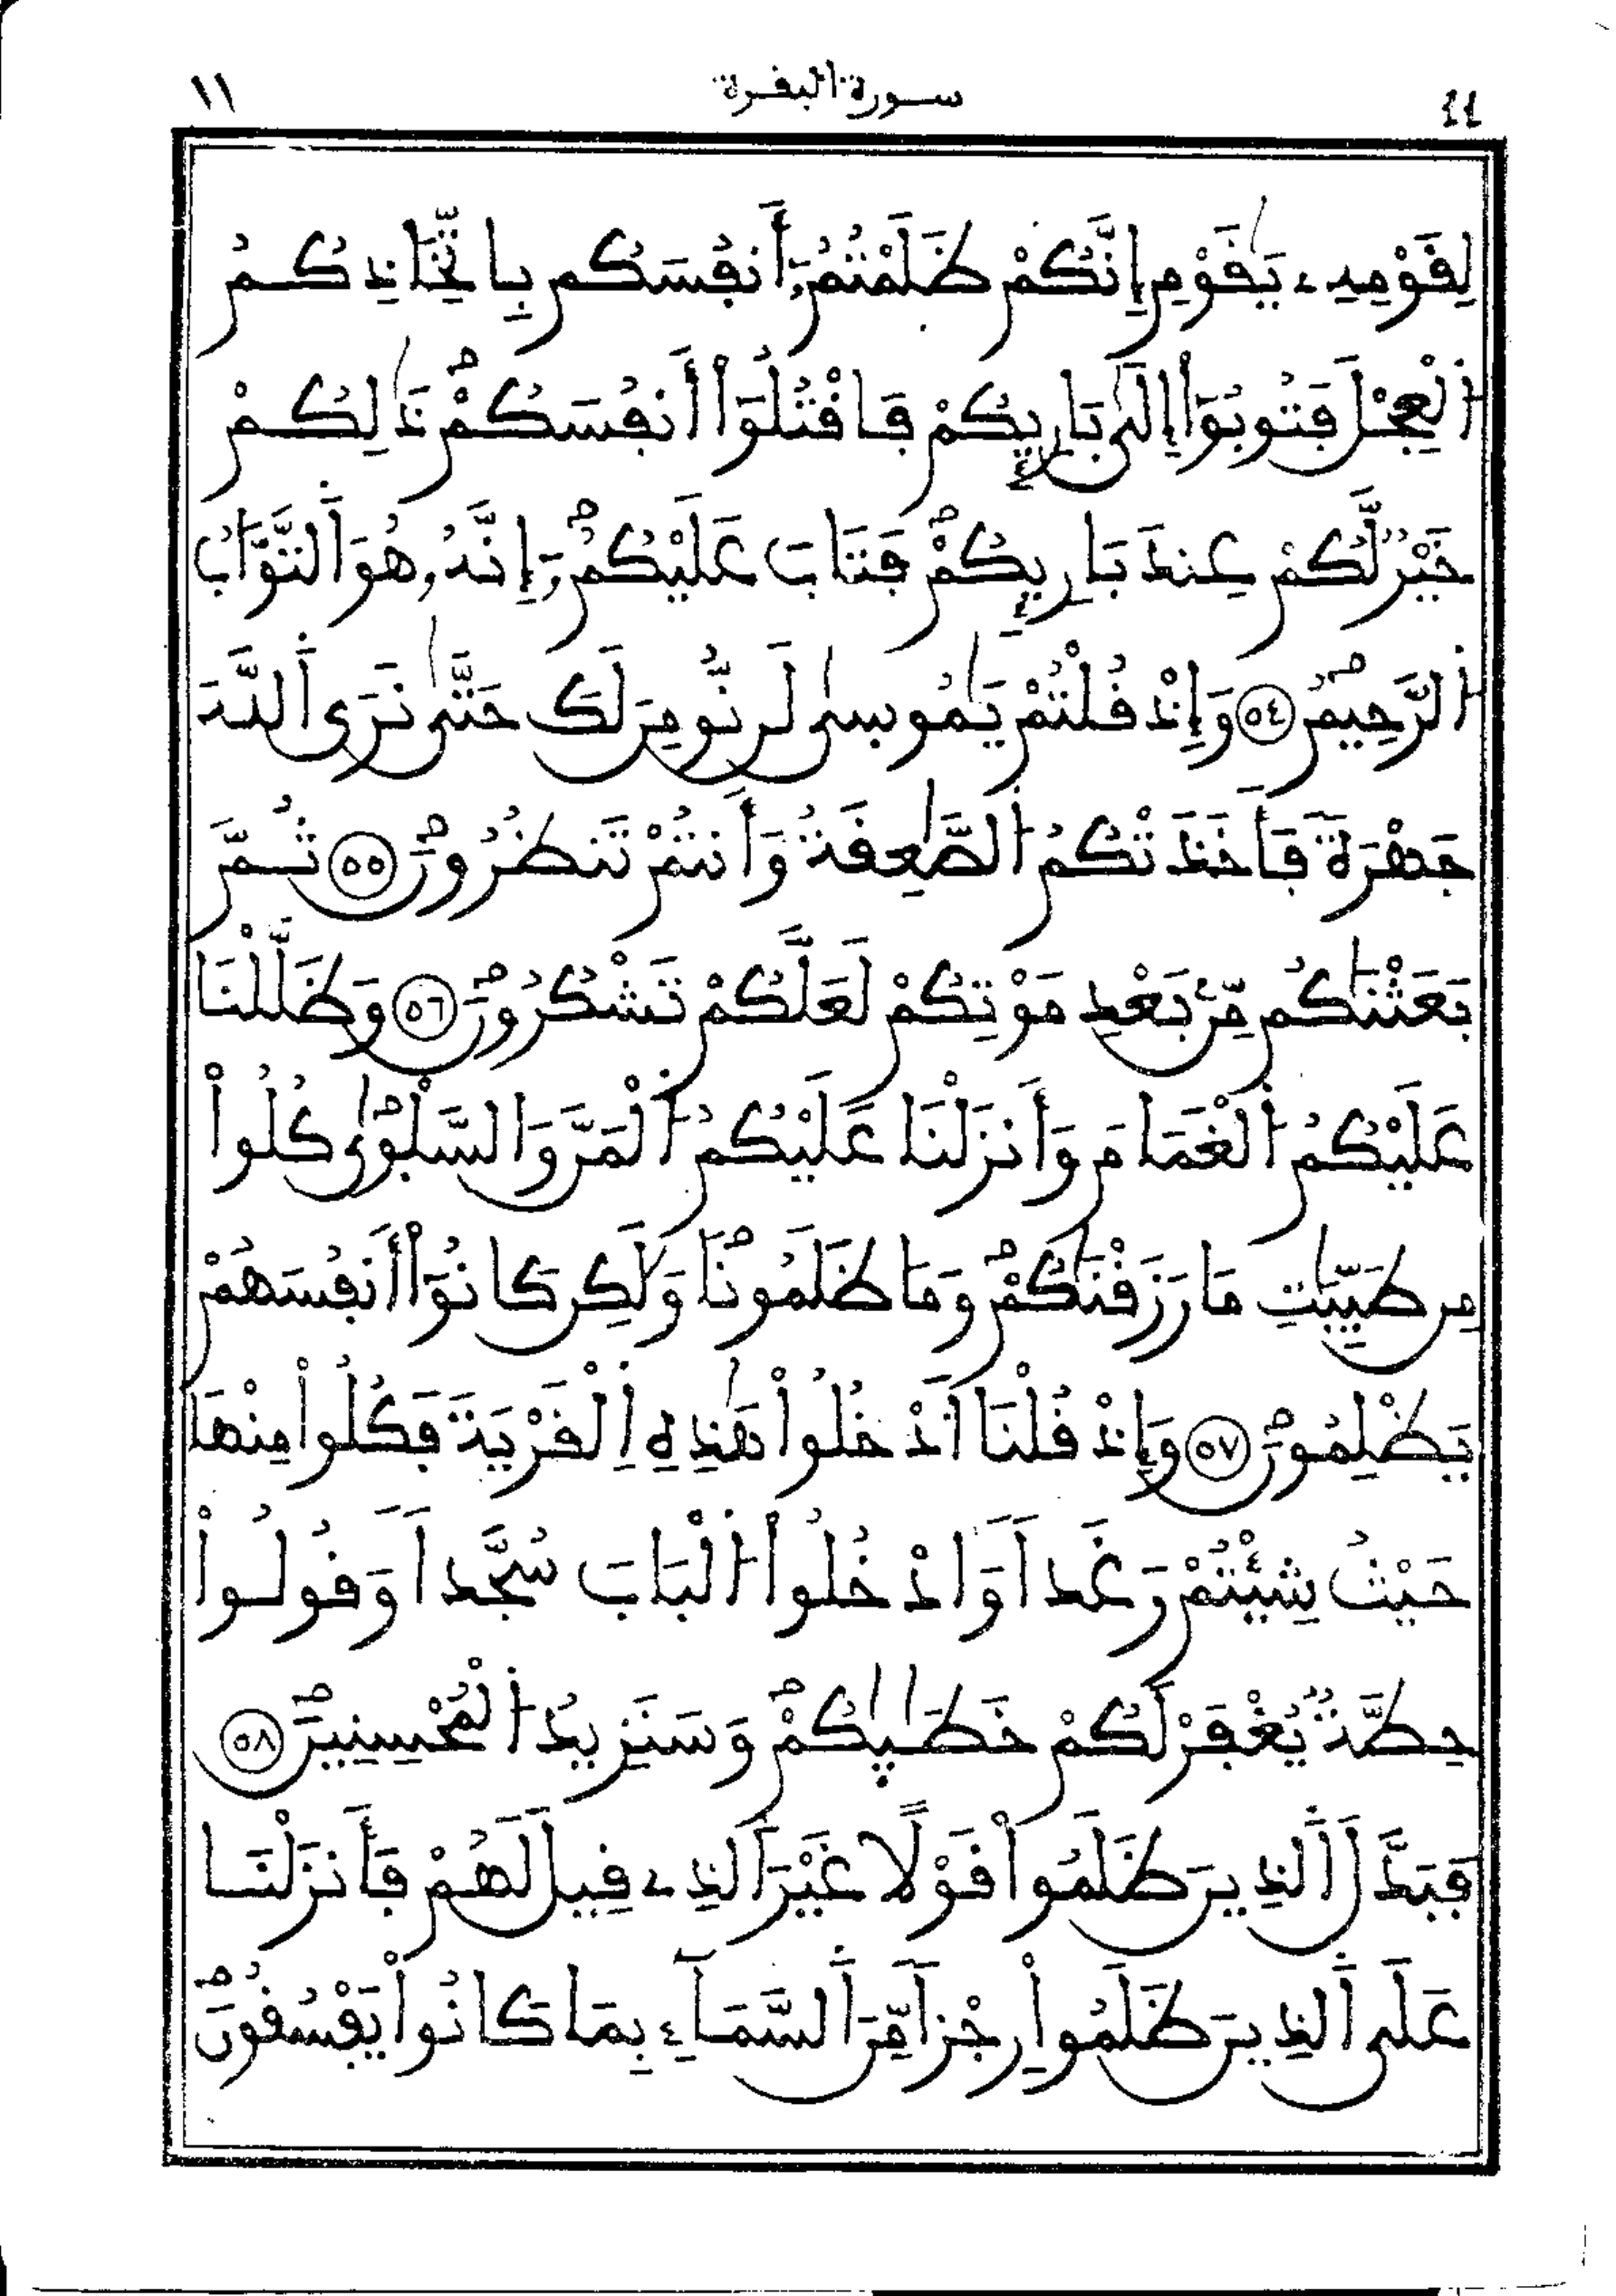 ١١ سورة البقرة 11
لِقَوْمِهِۦ يَٰقَوْمِ إِنَّكُمْ ظَلَمْتُمُۥٓ أَنفُسَكُم بِاتِّخَاذِكُمُ
اُ۬لْعِجْلَ فَتُوبُوٓاْ إِلَىٰ بَارِئِكُمْ فَاقْتُلُوٓاْ أَنفُسَكُمْۖ ذَٰلِكُمْ
خَيْرٞ لَّكُمْ عِندَ بَارِئِكُمْۖ فَتَابَ عَلَيْكُمُۥٓۖ إِنَّهُۥ هُوَ اَ۬لتَّوَّابُ
اُ۬لرَّحِيمُۖ ٥٤ وَإِذْ قُلْتُمْ يَٰمُوسىٰ لَن نُّومِنَ لَكَ حَتَّىٰ نَرَى اَ۬للَّهَ
جَهْرَةٗ فَأَخَذَتْكُمُ اُ۬لصَّٰعِقَةُ وَأَنتُمْ تَنظُرُونَۖ ٥٥ ثُمَّ
بَعَثْنَٰكُم مِّنۢ بَعْدِ مَوْتِكُمْ لَعَلَّكُمْ تَشْكُرُونَۖ ٥٦ وَظَلَّلْنَا
عَلَيْكُمُ اُ۬لْغَمَامَ وَأَنزَلْنَا عَلَيْكُمُ اُ۬لْمَنَّ وَالسَّلْوٰىۖ كُلُواْ
مِن طَيِّبَٰتِ مَا رَزَقْنَٰكُمْۖ وَمَا ظَلَمُونَاۖ وَلَٰكِن كَانُوٓاْ أَنفُسَهُمْ
يَظْلِمُونَۖ ٥٧ وَإِذْ قُلْنَا اَ۟دْخُلُواْ هَٰذِهِ اِ۬لْقَرْيَةَ فَكُلُواْ مِنْهَا
حَيْثُ شِئْتُمْ رَغَداٗ وَادْخُلُواْ اُ۬لْبَابَ سُجَّداٗ وَقُولُواْ
حِطَّةٞ يُغْفَرْ لَكُمْ خَطَٰيَٰكُمْۖ وَسَنَزِيدُ اُ۬لْمُحْسِنِينَۖ ٥٨
فَبَدَّلَ اَ۬لذِينَ ظَلَمُواْ قَوْلاً غَيْرَ اَ۬لذِے قِيلَ لَهُمْ فَأَنزَلْنَا
عَلَى اَ۬لذِينَ ظَلَمُواْ رِجْزاٗ مِّنَ اَ۬لسَّمَآءِ بِمَا كَانُواْ يَفْسُقُونَۖ